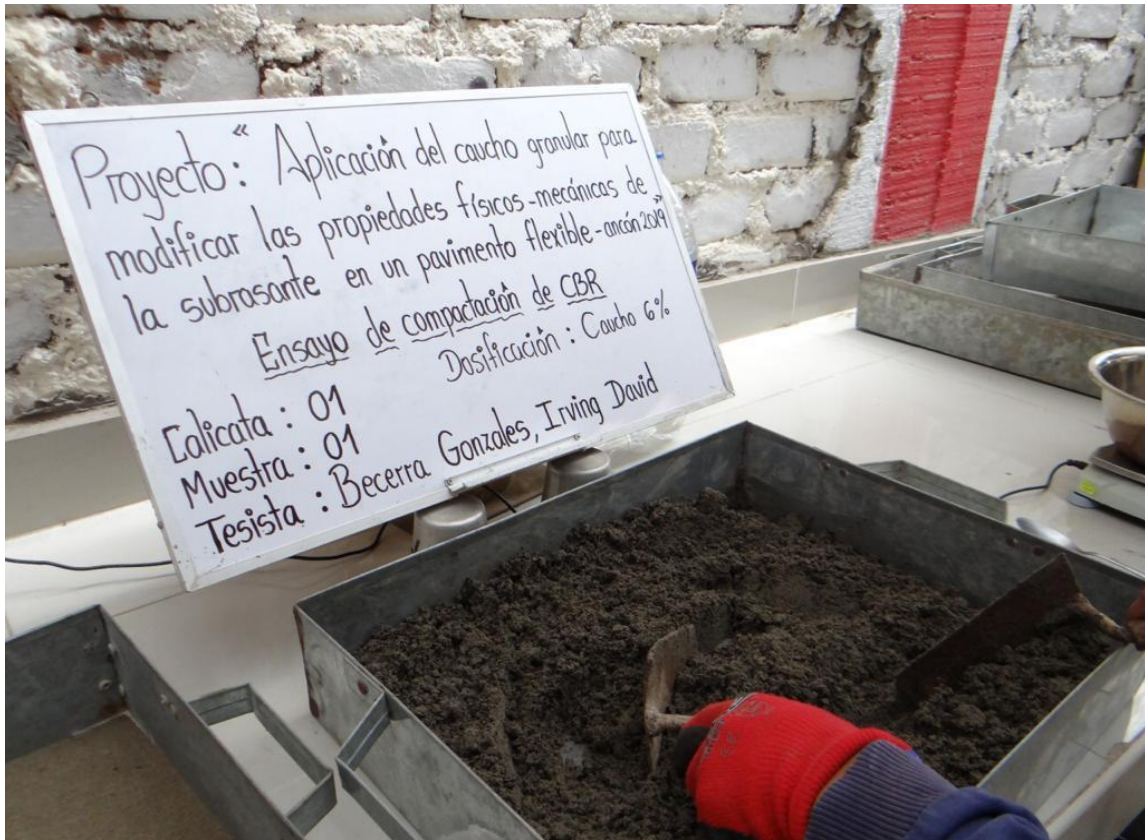 Proyecto: "Aplicación del caucho granular para
modificar las propiedades físicos-mecánicas de
la subrasante en un pavimento flexible-ancón 2019"
Ensayo de compactación de CBR
Dosificación: Caucho 6%
Calicata: 01
Muestra: 01
Tesista: Becerra Gonzales, Irving David